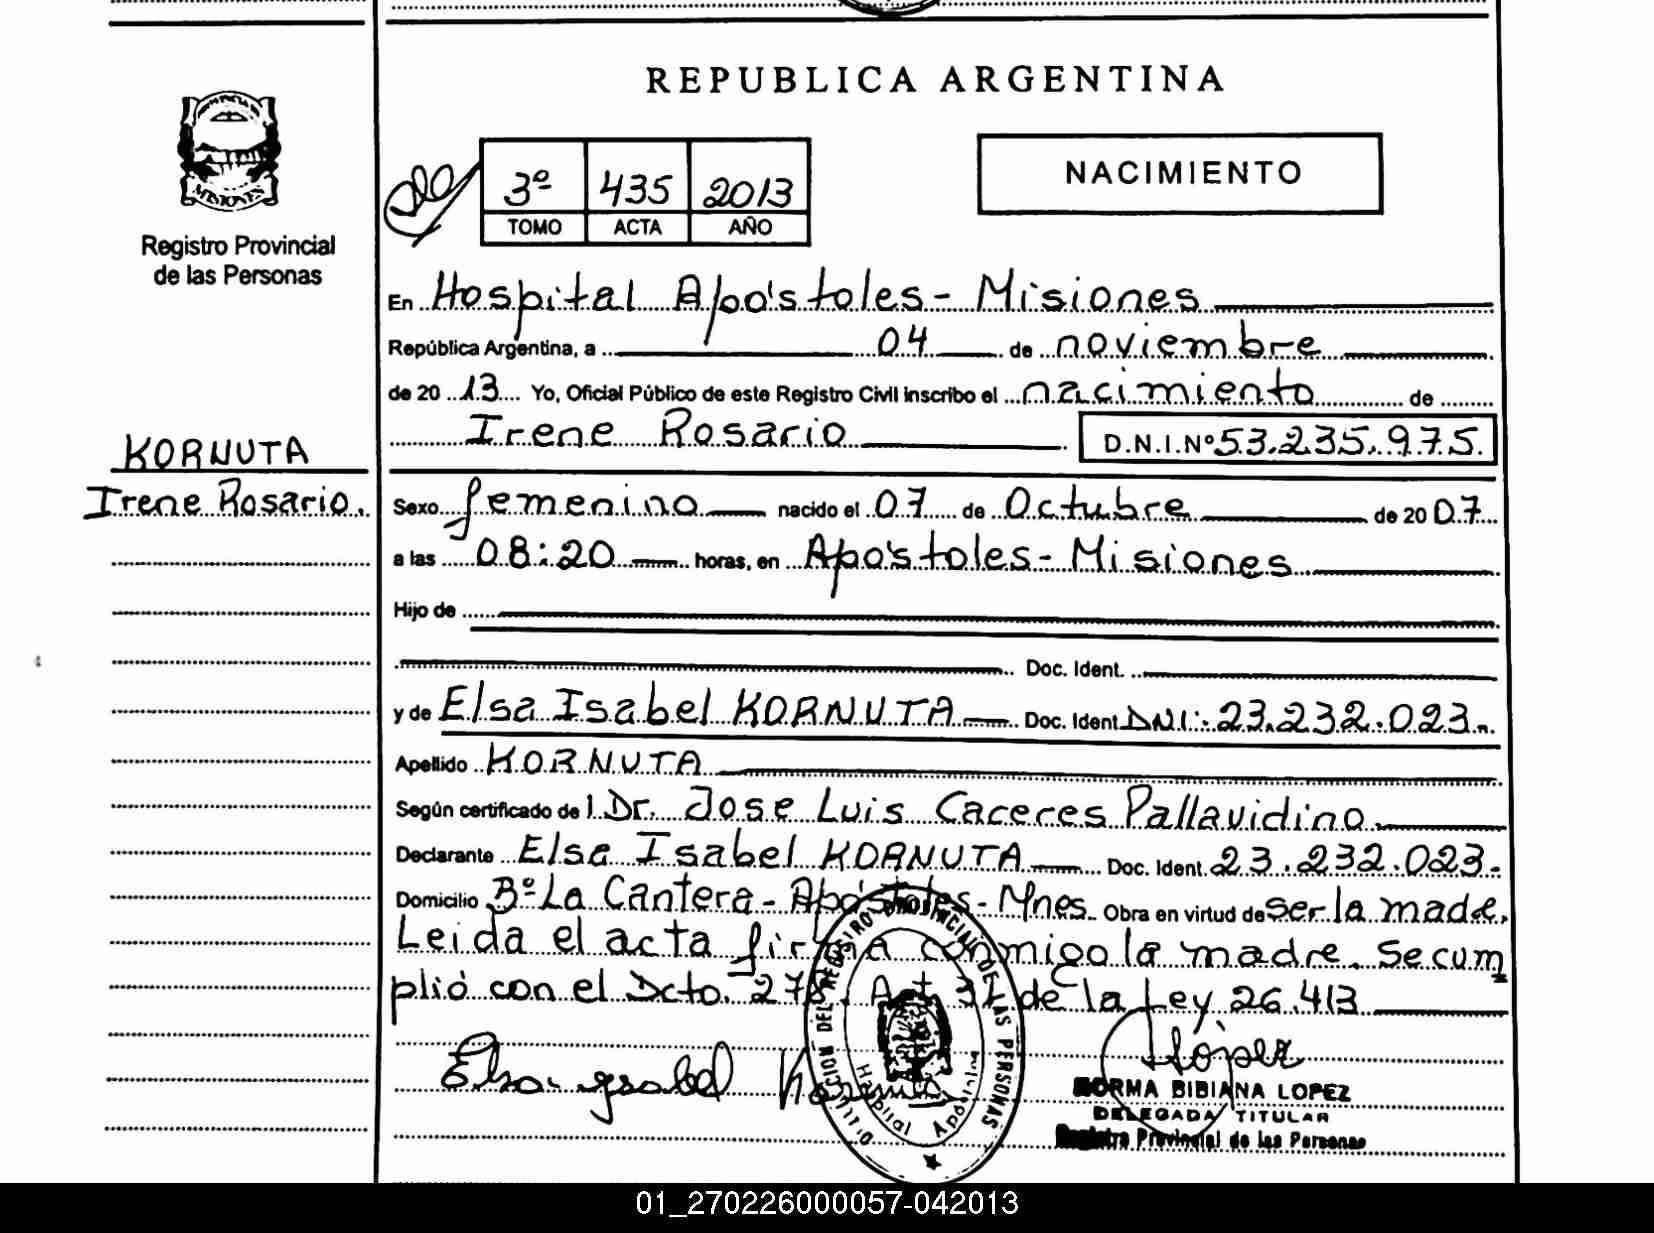 REPUBLICA ARGENTINA
MISIONES
Registro Provincial
de las Personas
3º 435 2013
TOMO ACTA AÑO
NACIMIENTO
En Hospital Apóstoles - Misiones
República Argentina, a 04 de noviembre
de 2013 Yo, Oficial Público de este Registro Civil inscribo el nacimiento de
Irene Rosario D.N.I.Nº 53.235.975.
KORNUTA
Irene Rosario.
Sexo femenino nacido el 07 de Octubre de 2007
a las 08:20 horas, en Apóstoles - Misiones
Hijo de
Doc. Ident.
y de Elsa Isabel KORNUTA Doc. Ident DNI: 23.232.023.
Apellido KORNUTA
Según certificado de l Dr. Jose Luis Caceres Pallavidino
Declarante Elsa Isabel KORNUTA Doc. Ident. 23.232.023.
Domicilio Bº La Cantera - Apóstoles - Mnes. Obra en virtud de ser la madre.
Leida el acta firma conmigo la madre. Se cum
plió con el Dcto. 278. Art 31 de la Ley 26.413
Elsa ysabel
López
NORMA BIBIANA LOPEZ
DELEGADA TITULAR
Registro Provincial de las Personas
DEL REGISTRO PROVINCIAL DE LAS PERSONAS
Hospital Apóstoles
01_270226000057-042013